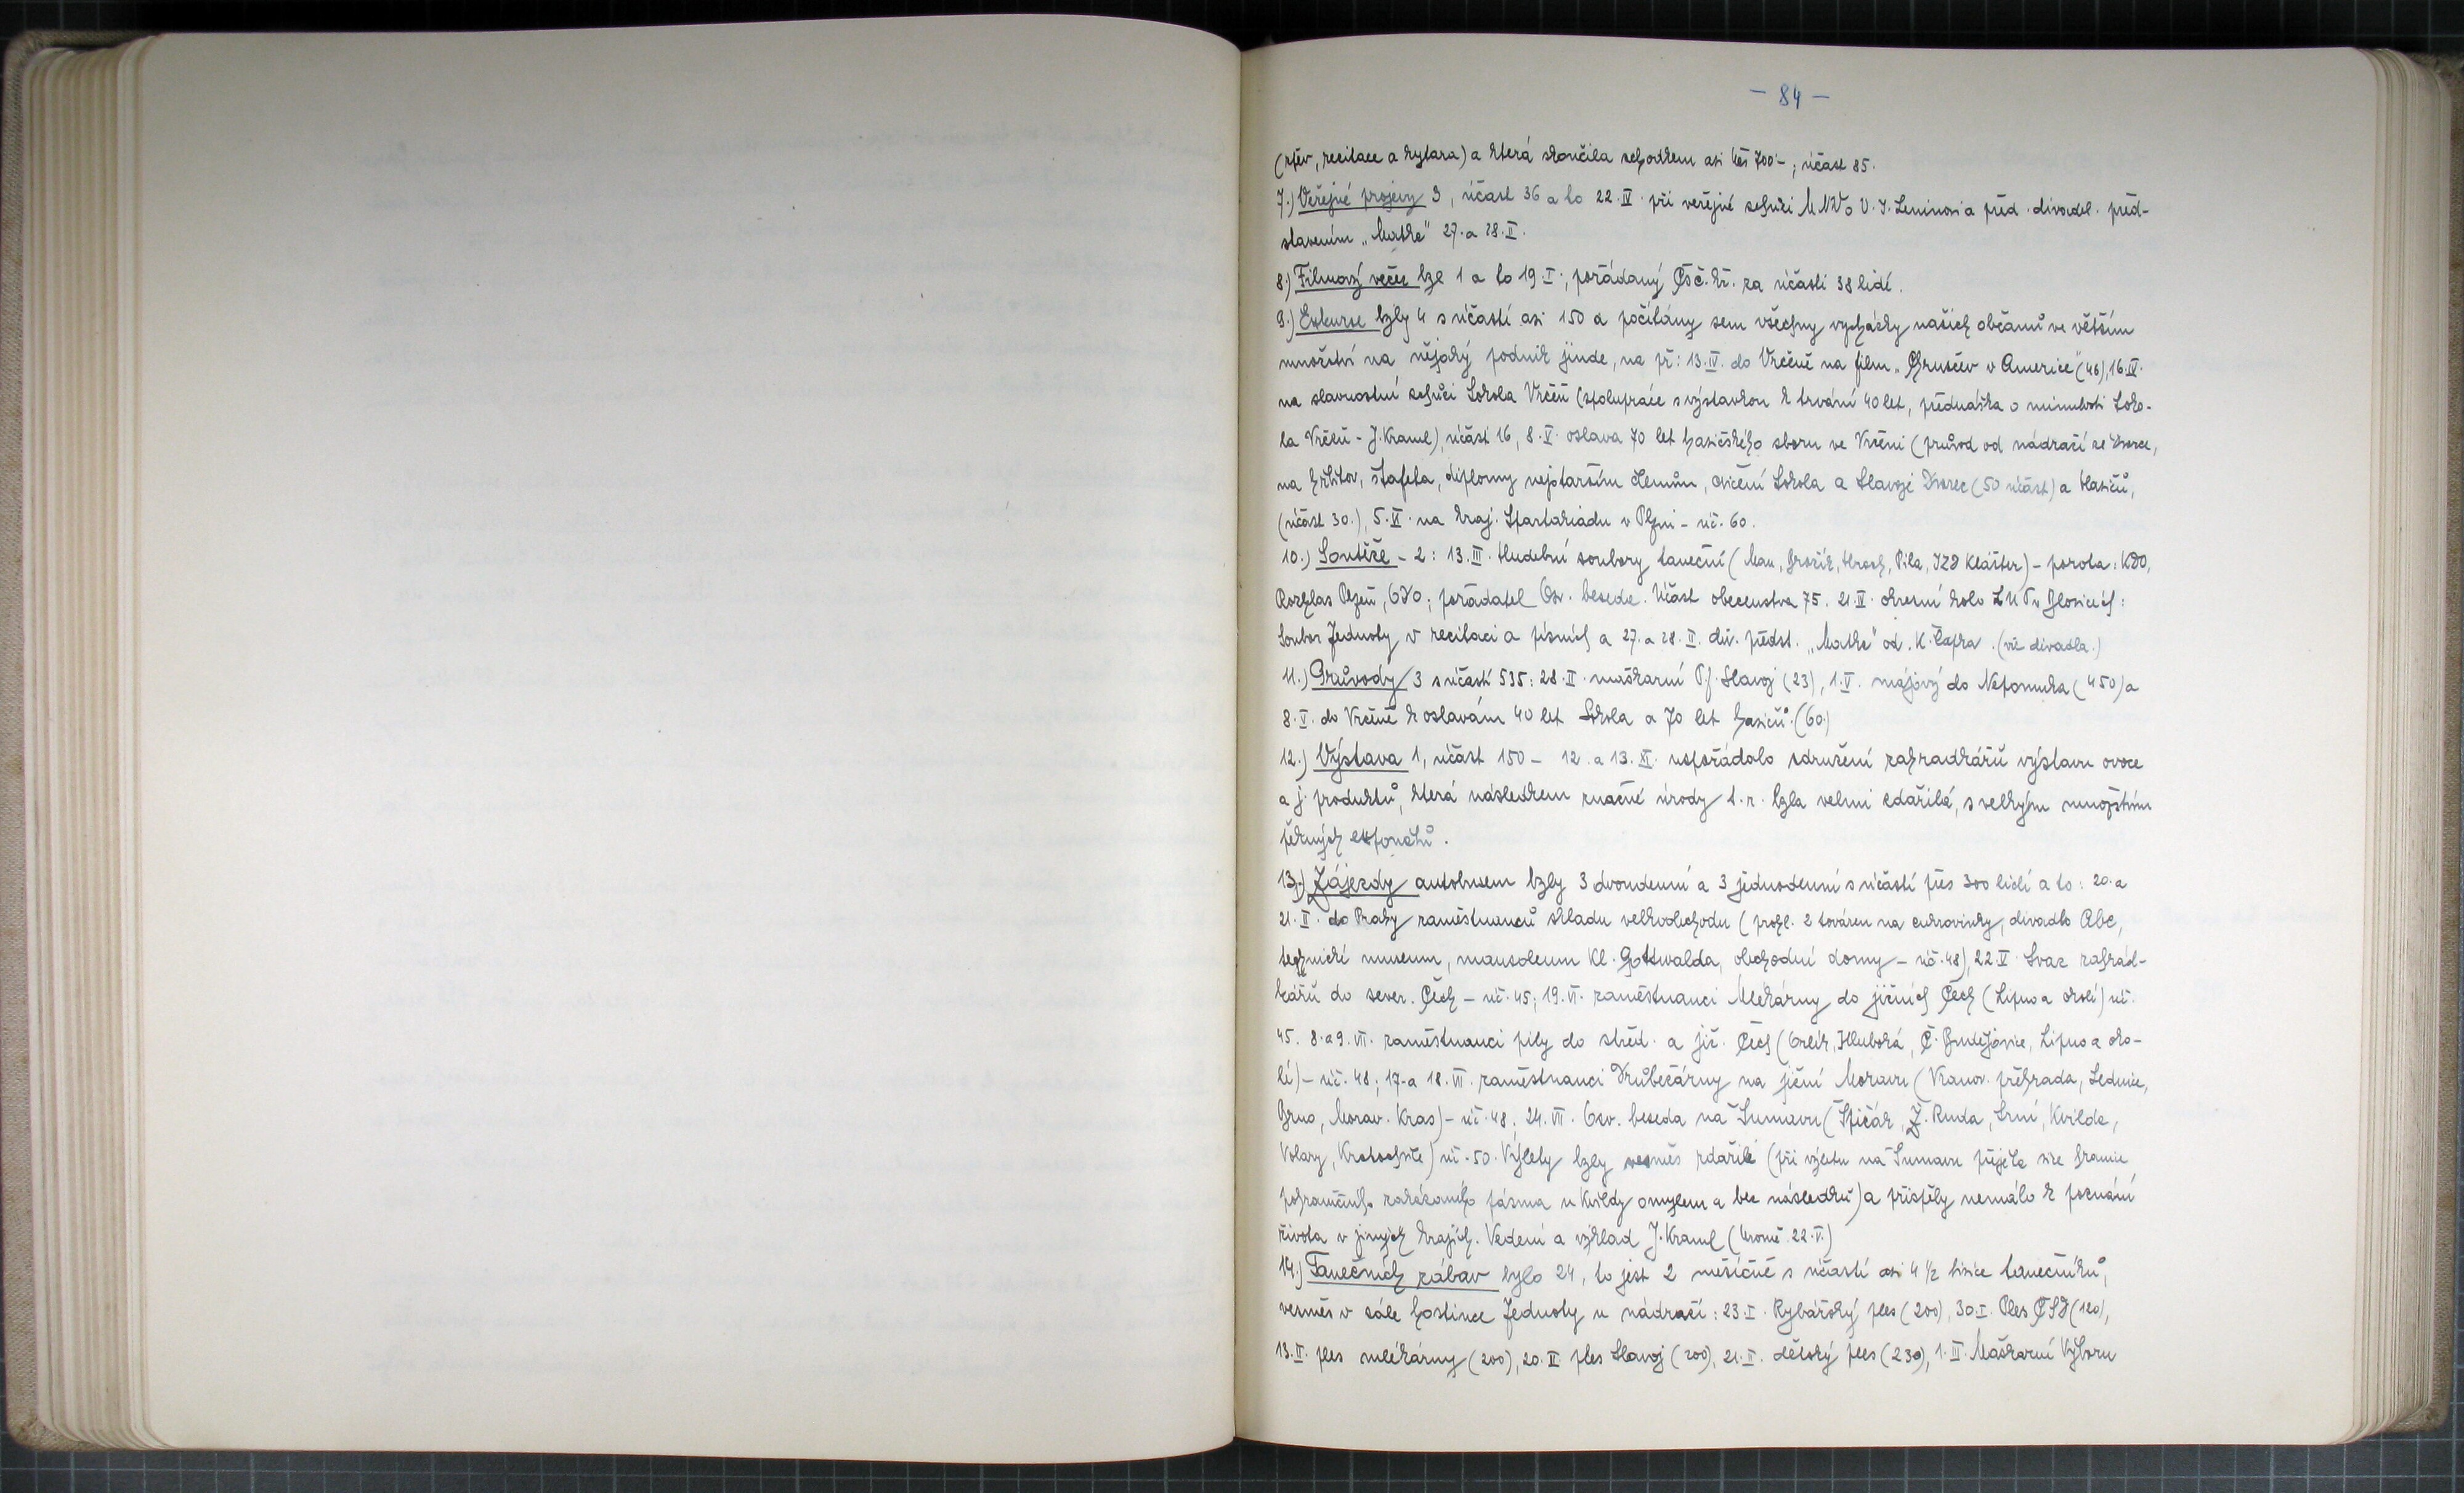 - 84 -
(zpěv, recitace a kytara) a která skončila schodkem asi Kčs 700'-; účast 85.
7.) Veřejné projevy 3, účast 36 a to 22.IV. při veřejné schůzi MNV o V. I. Leninovi a před. divadel. před-
stavením „Matka" 27. a 28.II.
8.) Filmový večer byl 1 a to 19.I., pořádaný ČSČ.kř. za účasti 38 lidí.
9.) Exkurse byly 4 s účastí asi 150 a počítány sem všechny vycházky našich občanů ve větším
množství na nějaký podnik jinde, na př: 13.IV. do Vrčeně na film „Chruščev v Americe" (46), 16.IV.
na slavnostní schůzi Sokola Vrčeň (spolupráce s výstavkou k trvání 40 let, přednáška o minulosti Soko-
la Vrčeň - J. Kraml), účast 16, 8.V. oslava 70 let hasičského sboru ve Vrčeni (průvod od nádraží ze Dvorce,
na hřbitov, štafeta, diplomy nejstarším členům, cvičení Sokola a Slavoje Dvorec (50 účast) a hasičů,
(účast 30.), 5.VI. na kraj. Spartakiádu v Plzni - úč. 60.
10.) Soutěže - 2: 13.III. Hudební soubory taneční (Mau, Brožík, Hroch, Pila, JZD Klášter) - porota: KDO,
Rozhlas Plzeň, ODO; pořadatel Osv. beseda. Účast obecenstva 75. 21.IV. okresní kolo LUT v Blovicích:
Soubor Jednoty v recitaci a písních a 27. a 28.II. div. předst. „Matka" od K. Čapka. (viz divadla.)
11.) Průvody 3 s účastí 535: 28.II. maškarní T.J. Slavoj (23), 1.V. májový do Nepomuka (450) a
8.V. do Vrčeně k oslavám 40 let Sokola a 70 let hasičů. (60.)
12.) Výstava 1, účast 150 - 12. a 13.XI. uspořádalo sdružení zahradkářů výstavu ovoce
a j. produktů, která následkem značné úrody t.r. byla velmi zdařilá, s velkým množstvím
pěkných exponátů.
13.) Zájezdy autobusem byly 3 dvoudenní a 3 jednodenní s účastí přes 300 lidí a to: 20. a
21.II. do Prahy zaměstnanců skladu velkoobchodu (prohl. 2 továren na cukrovinky, divadlo Abc,
technické museum, mausoleum Kl. Gottwalda, obchodní domy - úč. 48), 22.V. Svaz zahrád-
kářů do sever. Čech - úč. 45; 19.VI. zaměstnanci Mlékárny do jižních Čech (Lipno a okolí) úč.
45. 8. a 9.VII. zaměstnanci pily do střed. a již. Čech (Orlík, Hluboká, Č. Budějovice, Lipno a oko-
lí) - úč. 48; 17. a 18.VII. zaměstnanci Drůbežárny na jižní Moravu (Vranov. přehrada, Lednice,
Brno, Morav. Kras) - úč. 48; 24.VII. Osv. beseda na Šumavu (Špičák, Ž. Ruda, Srní, Kvilda,
Volary, Kratochvíle) úč. 50. Výlety byly vesměs zdařilé (při výletu na Šumavu přejeta sice hranice
pohraničního zakázaného pásma u Kvildy omylem a bez následků) a přispěly nemálo k poznání
života v jiných krajích. Vedení a výklad J. Kraml (kromě 22.V.)
14.) Tanečních zábav bylo 24, to jest 2 měsíčně s účastí asi 4 1/2 tisíce tanečníků,
vesměs v sále hostince Jednoty u nádraží: 23.I. Rybářský ples (200), 30.I. Ples ČSD (120),
13.II. ples mlékárny (200), 20.II. ples Slavoj (200), 21.II. dětský ples (230), 1.III. Maškarní Výboru